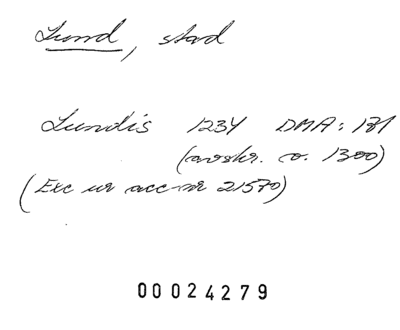 Lund, stad
Lundis 1234 DMA: 181
(avskr. o. 1300)
(Exc ur acc-nr 21570)
00024279